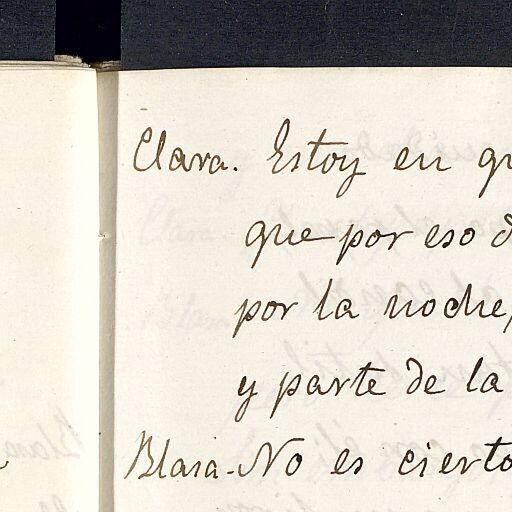 Clara. Estoy en qu
que por eso d
por la noche,
y parte de la
Blasa-No es cierto